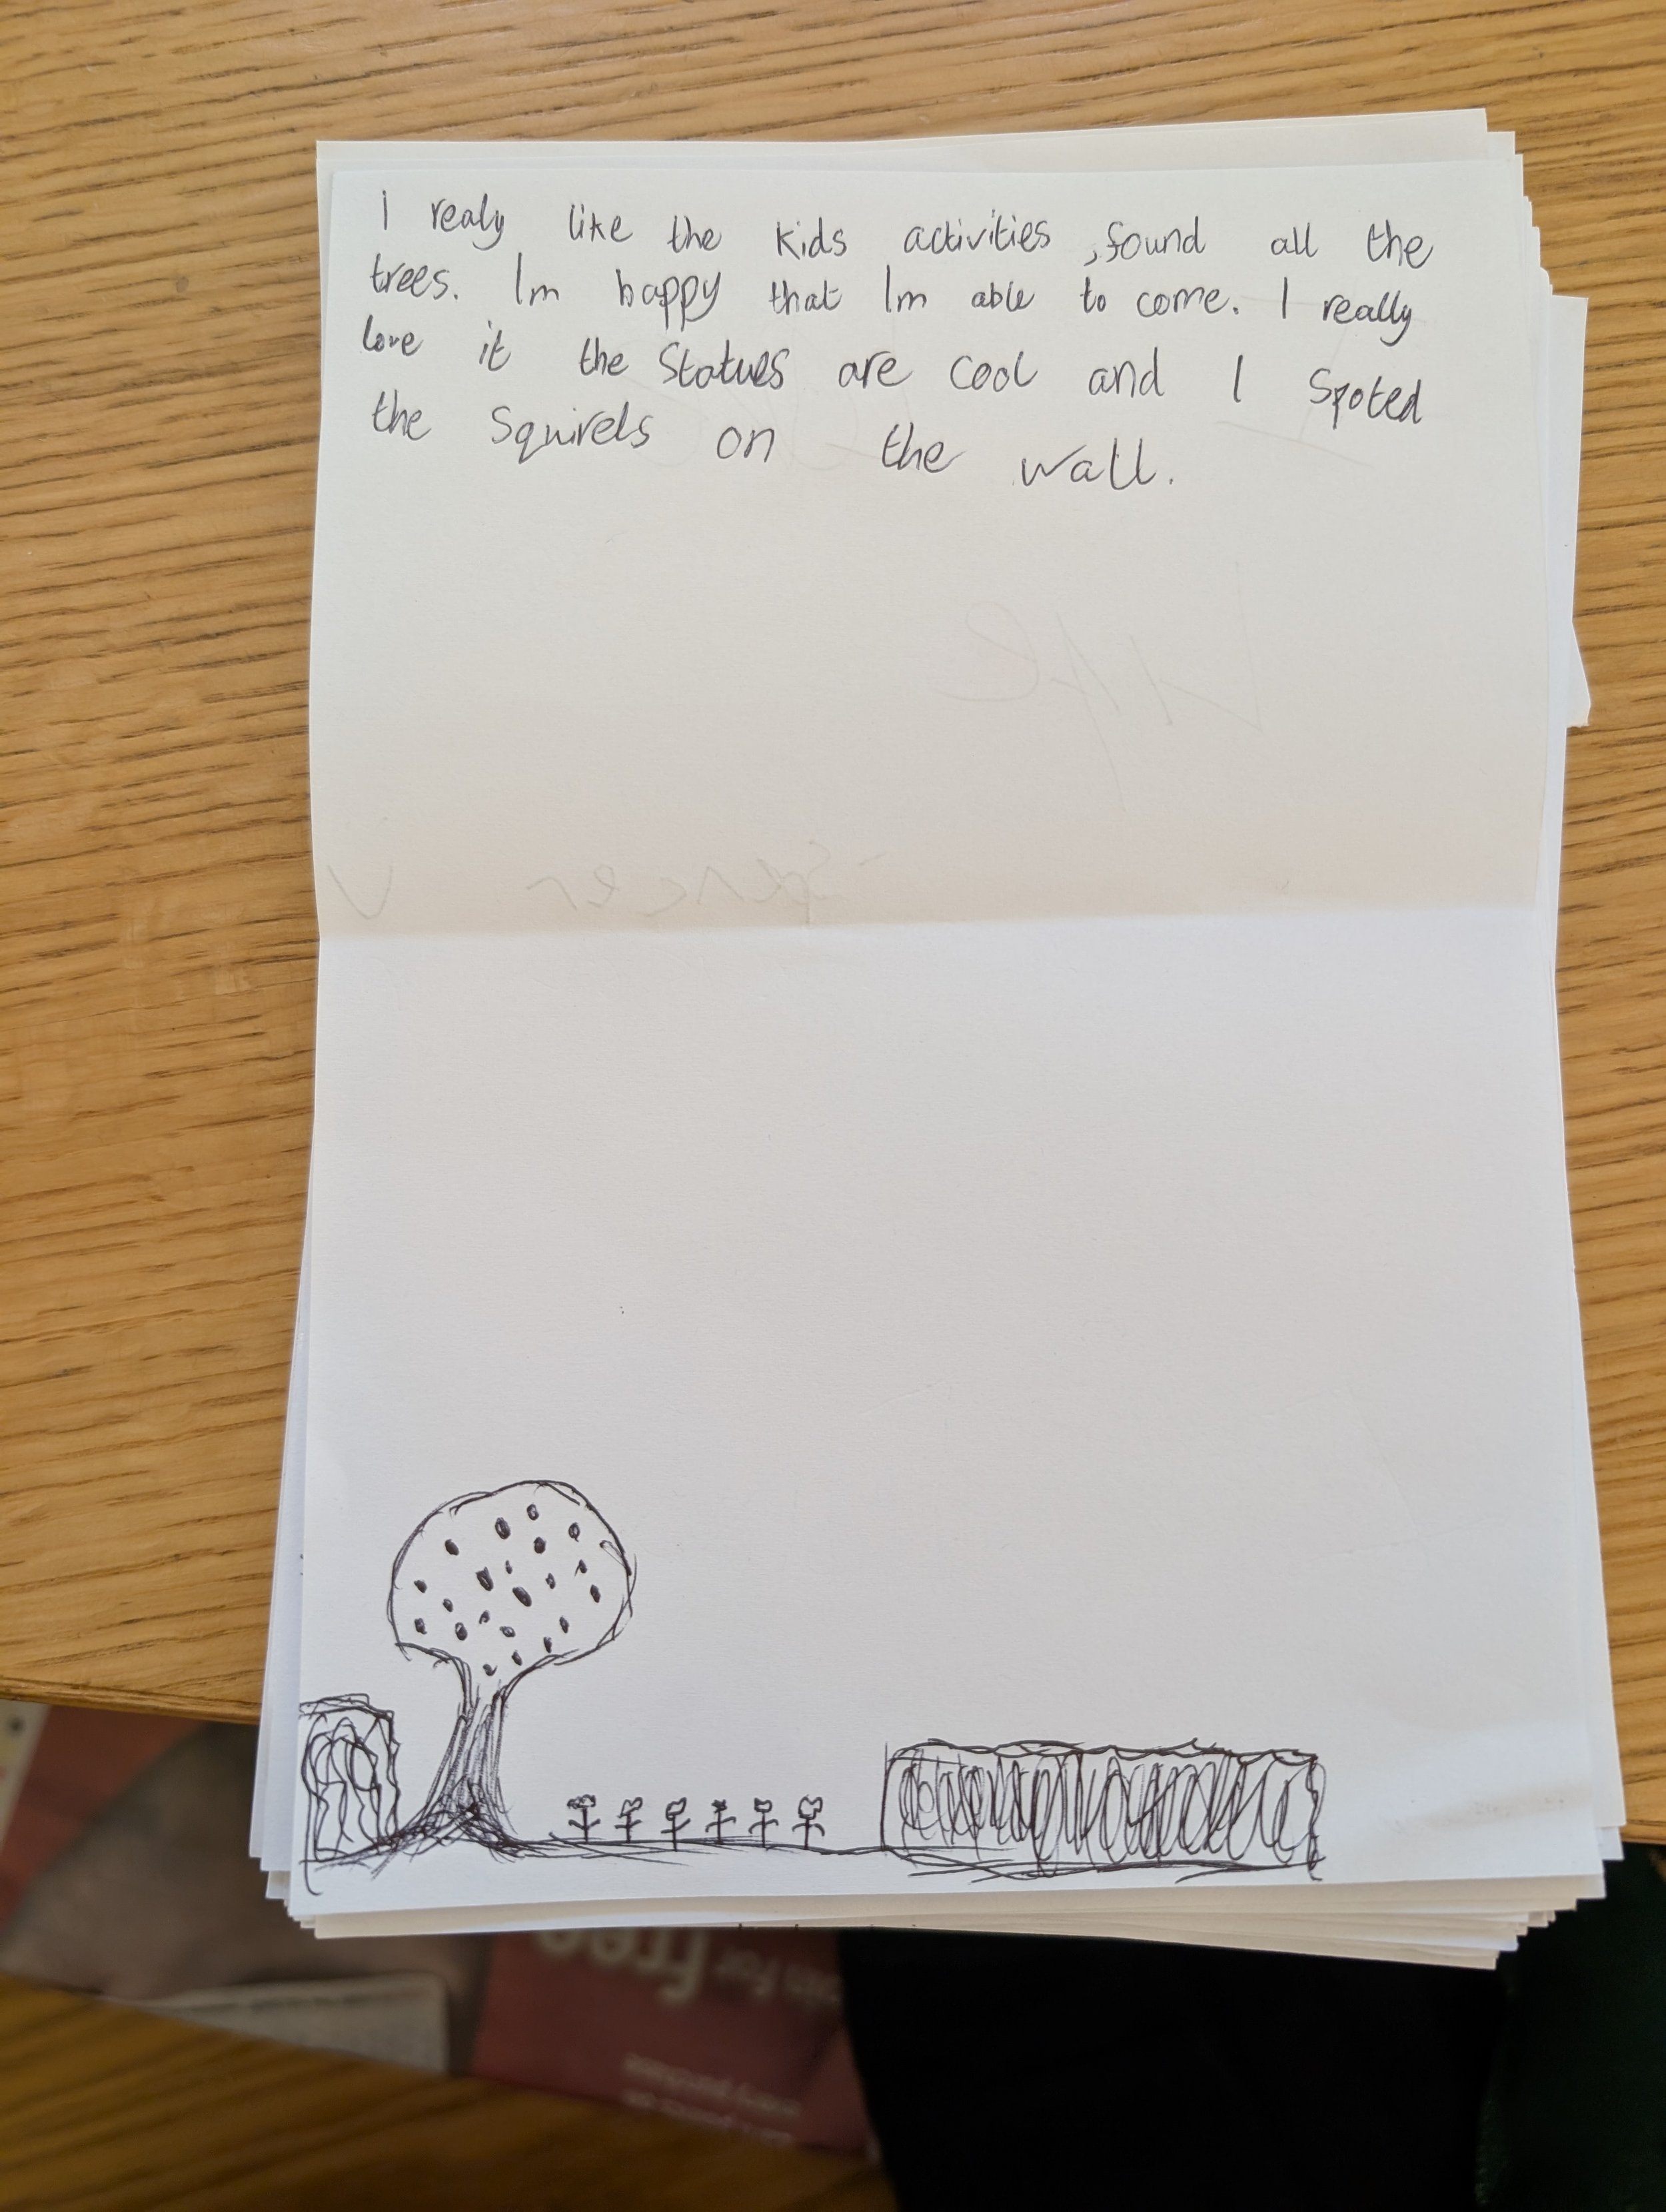 I realy like the kids activities ,found all the
trees. Im happy that Im able to come. I really
love it the statues are cool and I spoted
the squirels on the wall.
Life
Spencer
free